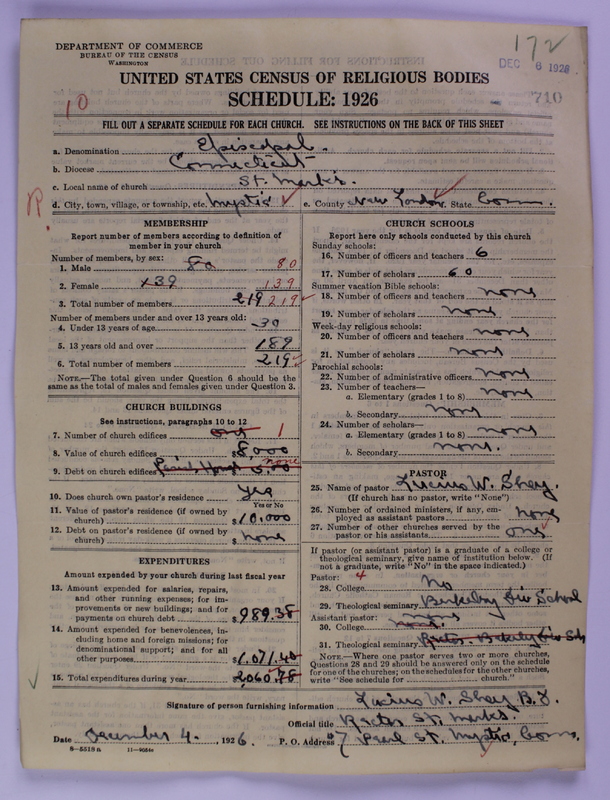 DEPARTMENT OF COMMERCE
BUREAU OF THE CENSUS
WASHINGTON
172
DEC 6 1926
UNITED STATES CENSUS OF RELIGIOUS BODIES
SCHEDULE: 1926
710
10
FILL OUT A SEPARATE SCHEDULE FOR EACH CHURCH. SEE INSTRUCTIONS ON THE BACK OF THIS SHEET
a. Denomination Episcopal.
b. Diocese Connecticut
c. Local name of church St. Marks.
R.
d. City, town, village, or township, etc. Mystic e. County New London. State Conn.
MEMBERSHIP
Report number of members according to definition of member in your church
Number of members, by sex:
1. Male 80 80
2. Female 139 139
3. Total number of members 219 219
Number of members under and over 13 years old:
4. Under 13 years of age 30
5. 13 years old and over 189
6. Total number of members 219
NOTE.—The total given under Question 6 should be the same as the total of males and females given under Question 3.
CHURCH BUILDINGS
See instructions, paragraphs 10 to 12
7. Number of church edifices one 1
8. Value of church edifices $8000
9. Debt on church edifices Parish House $ none
10. Does church own pastor's residence yes
Yes or No
11. Value of pastor's residence (if owned by church) $10.000
12. Debt on pastor's residence (if owned by church) $ none
EXPENDITURES
Amount expended by your church during last fiscal year
13. Amount expended for salaries, repairs, and other running expenses; for improvements or new buildings; and for payments on church debt $989.38
14. Amount expended for benevolences, including home and foreign missions; for denominational support; and for all other purposes $1.071.40
15. Total expenditures during year 2,060.78
CHURCH SCHOOLS
Report here only schools conducted by this church
Sunday schools:
16. Number of officers and teachers 6
17. Number of scholars 60
Summer vacation Bible schools:
18. Number of officers and teachers none
19. Number of scholars none
Week-day religious schools:
20. Number of officers and teachers none
21. Number of scholars none
Parochial schools:
22. Number of administrative officers none
23. Number of teachers—
a. Elementary (grades 1 to 8) none
b. Secondary none
24. Number of scholars—
a. Elementary (grades 1 to 8) none
b. Secondary none.
PASTOR
25. Name of pastor Lucius W. Shey.
(If church has no pastor, write "None")
26. Number of ordained ministers, if any, employed as assistant pastors none
27. Number of other churches served by the pastor or his assistants one
If pastor (or assistant pastor) is a graduate of a college or theological seminary, give name of institution below. (If not a graduate, write "No" in the space indicated.)
Pastor: 4
28. College No
29. Theological seminary Berkeley Div School
Assistant pastor:
30. College
31. Theological seminary Rector. Berkeley Div Sch
NOTE.—Where one pastor serves two or more churches, Questions 28 and 29 should be answered only on the schedule for one of the churches; on the schedules for the other churches, write "See schedule for ........ church."
Signature of person furnishing information Lucius W. Shey B.D.
Official title Rector St. Marks.
Date December 4., 1926. P. O. Address 7 Pearl St. Mystic, Conn.
8—5518a 11—9054c